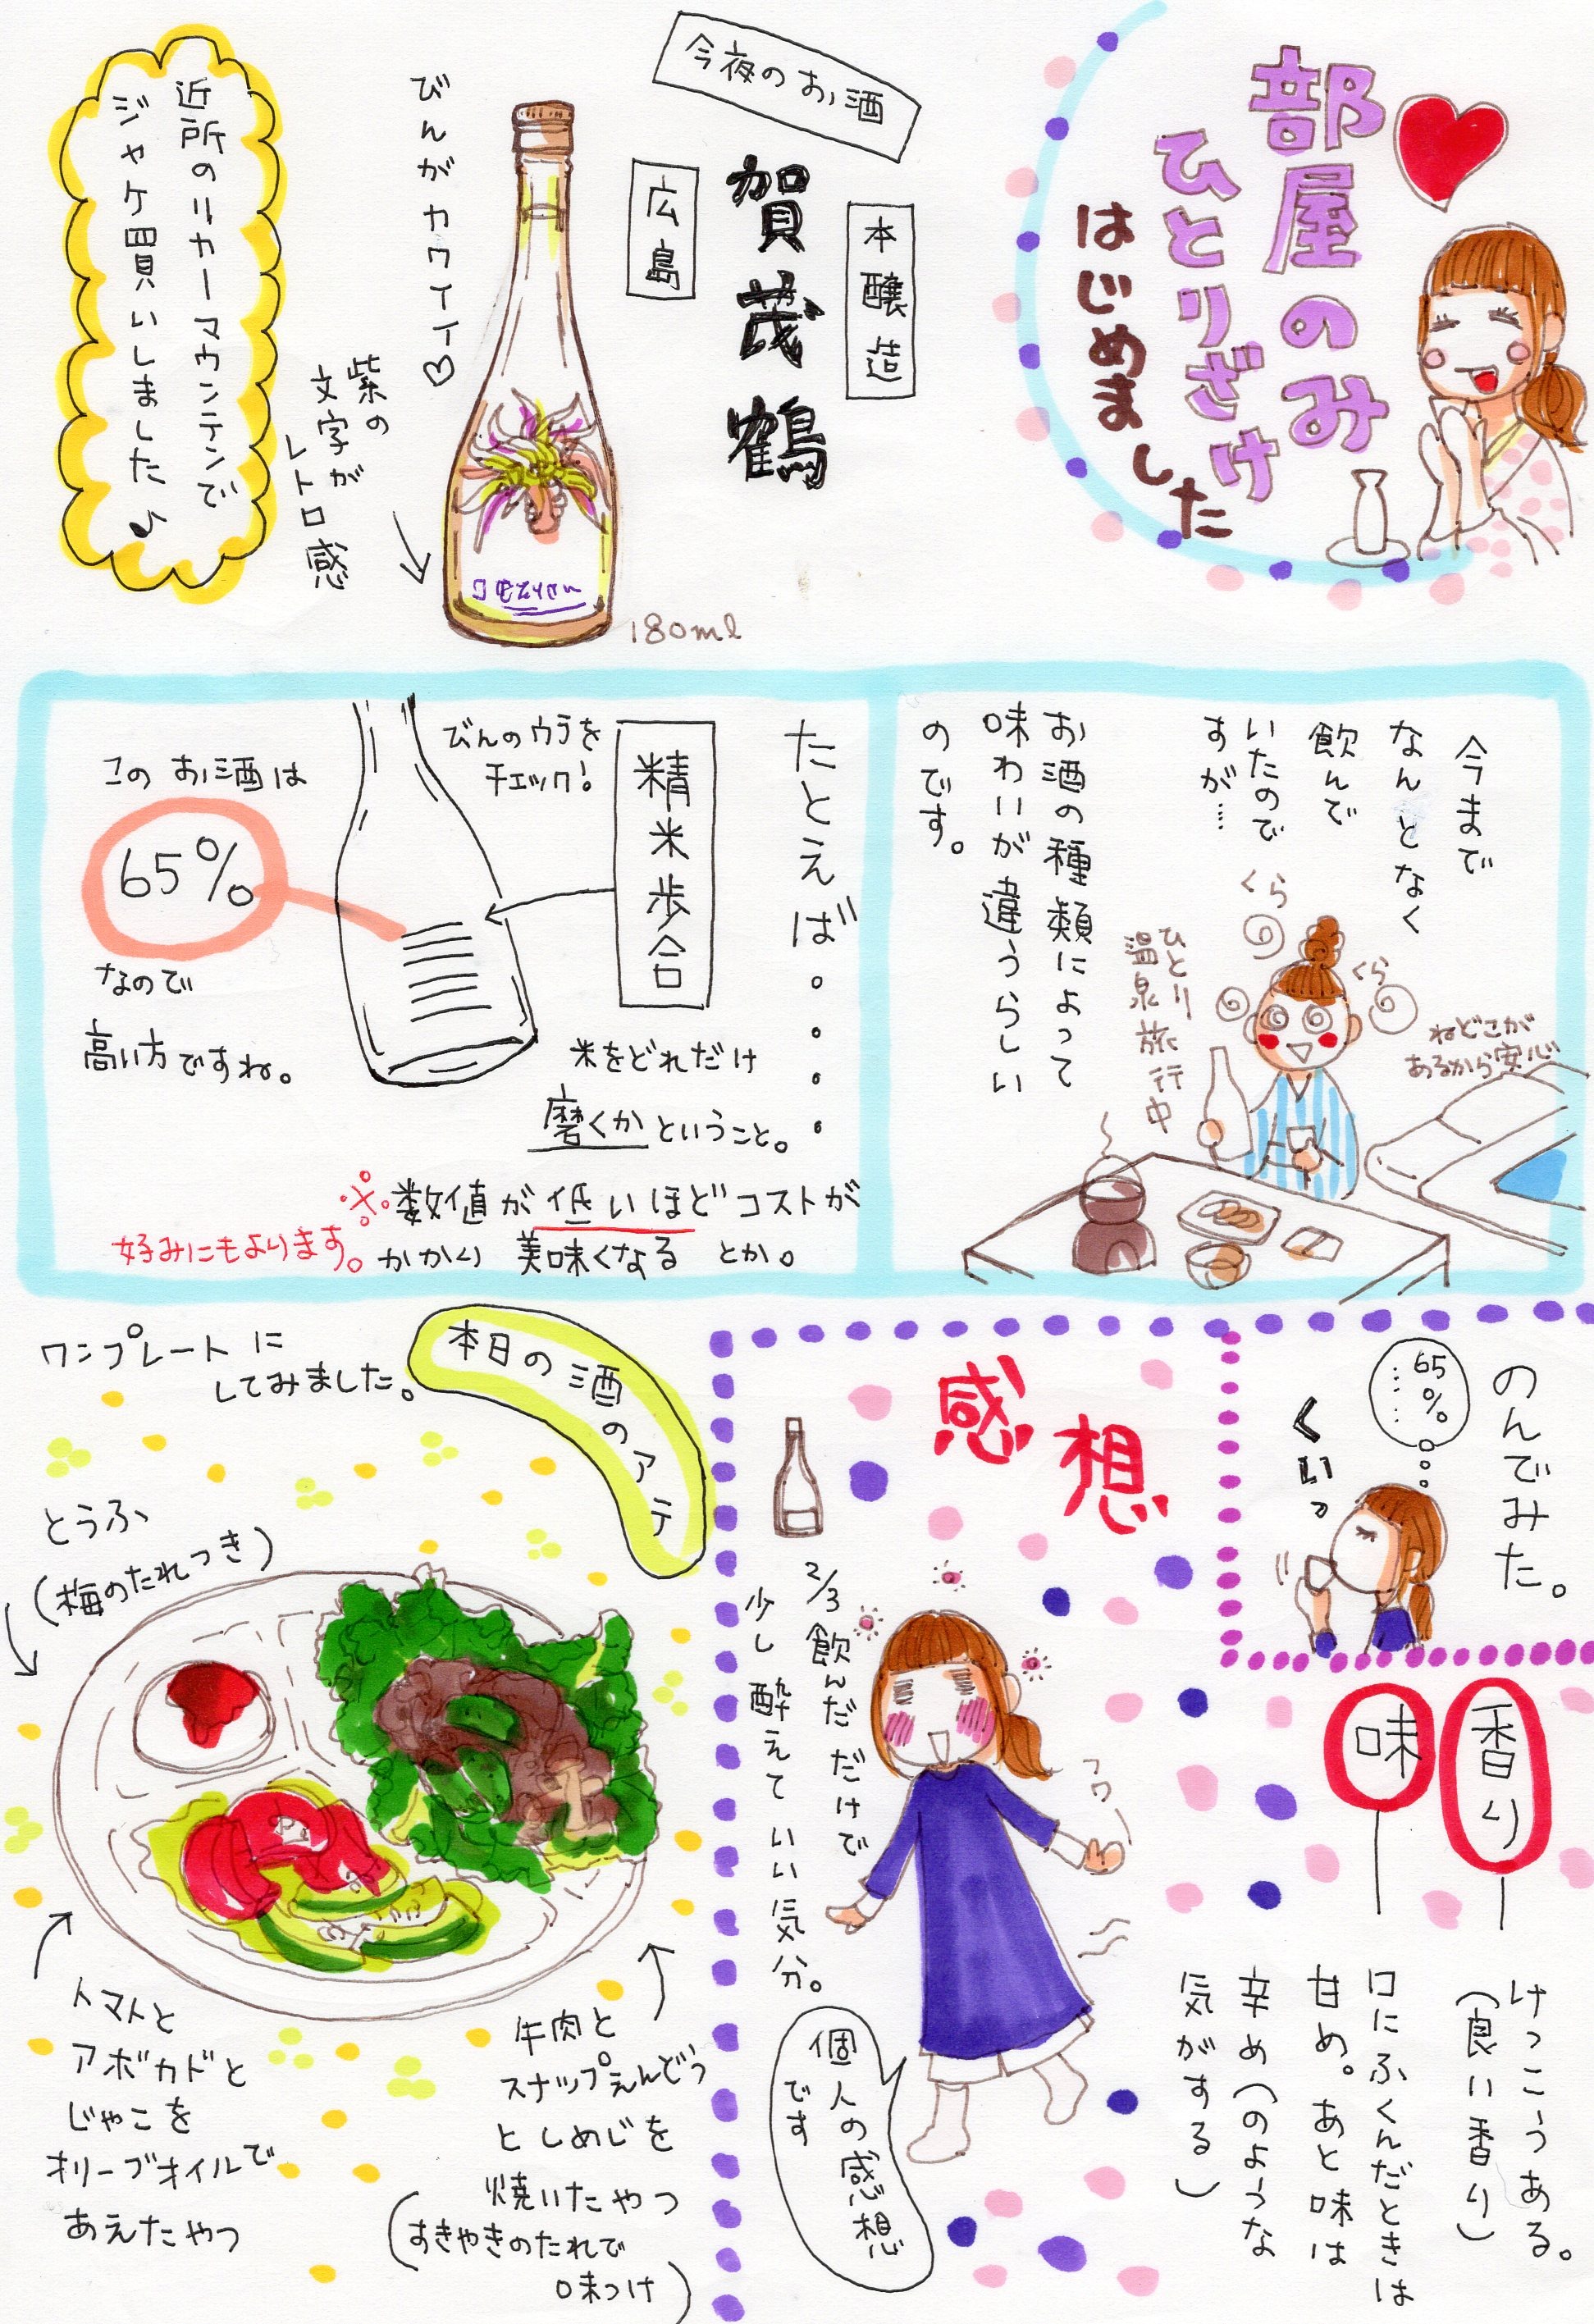 部屋のみ
ひとりざけ
はじめました
今夜のお酒
本醸造
賀茂鶴
広島
びんがカワイイ♡
紫の
文字が
レトロ感
180ml
近所のリカーマウンテンで
ジャケ買いしました♪
今まで
なんとなく
飲んで
いたので
すが…
お酒の種類によって
味わいが違うらしい
のです。
くら
くら
ひとり
温泉旅行中
ねどこが
あるから安心
たとえば・・・・・
精米歩合
びんのウラを
チェック!
米をどれだけ
磨くかということ。
このお酒は
65%
なので
高い方ですね。
数値が低いほどコストが
かかり 美味くなる とか。
※好みにもよります。
のんでみた。
65%
……
くいっ
香り
けっこうある。
(良い香り)
味
口にふくんだときは
甘め。あと味は
辛め(のような
気がする)
感想
2/3飲んだだけで
少し酔えていい気分。
フワ
個人の感想
です
本日の酒のアテ
ワンプレートに
してみました。
とうふ
(梅のたれつき)
トマトと
アボカドと
じゃこを
オリーブオイルで
あえたやつ
牛肉と
スナップえんどう
としめじを
焼いたやつ
(すきやきのたれで
味つけ)